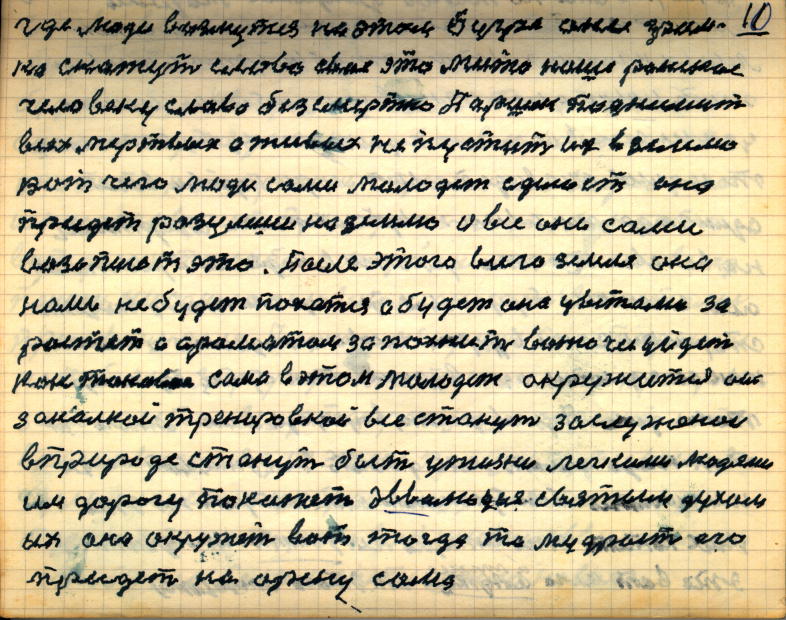 10
где люди возмутся на этом бугре они гром-
ко скажут слово свое это мыто наше ранное
человеку слово безсмертно Паршек поднимит
всех мертвых а живых не пустит их в землю
вот чего люди сами молодеж сделают она
придет разумии надемью и все они сами
возьпают это. После этого виго земля она
нами не будет похатся а будет она цветами за
ростет а ароматом запохнит воночи уйдет
как токовое сама в этом молодеж окружится ои
закалкой тренировкой все станут заслуженои
в природе станут быт ужизни легкими людями
им дорогу покажет Эввалюция святым духом
их она окружет вот тогда то мудрост его
придет на арену сама